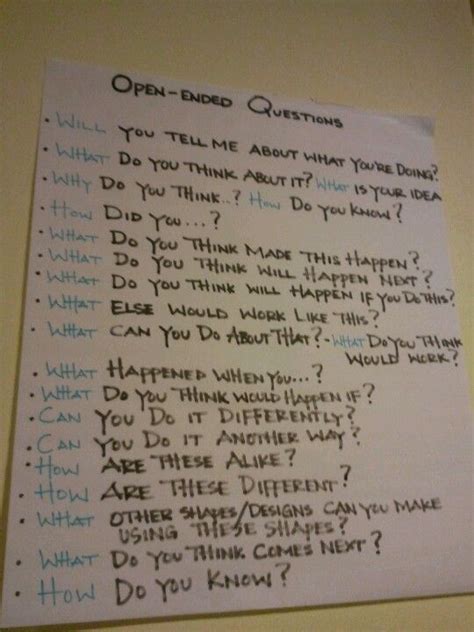 OPEN-ENDED QUESTIONS
• WILL YOU TELL ME ABOUT WHAT YOU'RE DOING?
• WHAT DO YOU THINK ABOUT IT? WHAT IS YOUR IDEA
• WHY DO YOU THINK..? HOW DO YOU KNOW?
• HOW DID YOU...?
• WHAT DO YOU THINK MADE THIS HAPPEN?
• WHAT DO YOU THINK WILL HAPPEN NEXT?
• WHAT DO YOU THINK WILL HAPPEN IF YOU DO THIS?
• WHAT ELSE WOULD WORK LIKE THIS?
• WHAT CAN YOU DO ABOUT THAT? - WHAT DO YOU THINK
WOULD WORK?
• WHAT HAPPENED WHEN YOU...?
• WHAT DO YOU THINK WOULD HAPPEN IF?
• CAN YOU DO IT DIFFERENTLY?
• CAN YOU DO IT ANOTHER WAY?
• HOW ARE THESE ALIKE?
• HOW ARE THESE DIFFERENT?
• WHAT OTHER SHAPES/DESIGNS CAN YOU MAKE
USING THESE SHAPES?
• WHAT DO YOU THINK COMES NEXT?
• HOW DO YOU KNOW?